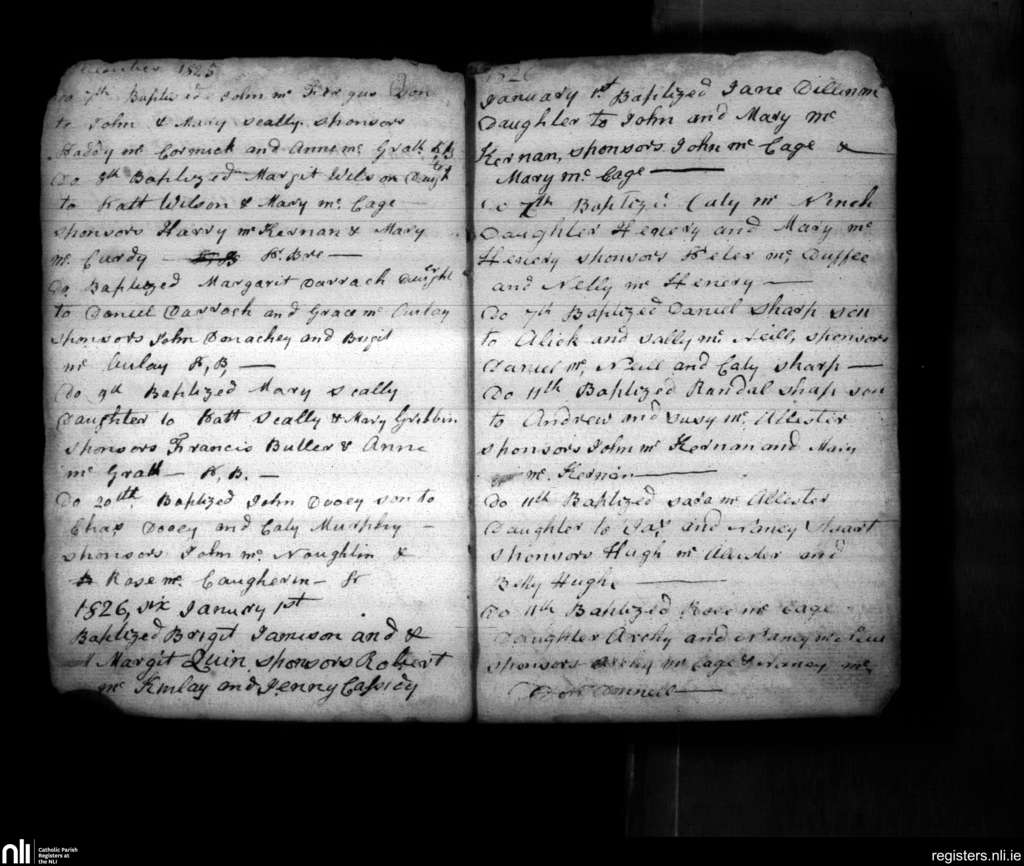 1825
Do 7th Baptized John mc Fergus Son
to John & Mary Scally sponsors
Paddy mc Cormick and Anne mc Grath
Do 8th Baptized Margit Wilson Daught
to Patt Wilson & Mary mc Cage
sponsors Harry mc Kernan & Mary
mc Curdy P. Bre
Do Baptized Margarit Darrach Daughter
to Daniel Darroch and Grace mc Aulay
sponsors John Donachey and Brigit
mc Aulay P, B,
Do 9th Baptized Mary Scally
Daughter to Patt Scally & Mary Gribbin
sponsors Francis Butler & Anne
mc Grath P, B.
Do 20th Baptized John Dooey son to
Chas Dooey and Caty Murphy
sponsors John mc Noughlin &
Rose mc Caugherin
1826, six Janury 1st
Baptized Brigit Jamison and &
Margit Quin sponsors Robert
mc Kinlay and Jenny Cassidy
1826
January 1st Baptized Jane
Daughter to John and Mary mc
Kernan, sponsors John mc Cage &
Mary mc Cage
7th Baptized Caty mc
Daughter Henery and Mary mc
Henery sponsors Peter mc Duffee
and Nelly mc Henery
Do 7th Baptized Daniel Sharp son
to Alick and Sally mc Neill, sponsors
Daniel mc Neill and Caty Sharp
Do 11th Baptized Randal Shap son
to Andrew and Susy mc Allester
sponsors John mc Kernan and Mary
mc Kernan
Do 11th Baptized Sara mc Allester
Daughter to Jas and Nancy Stuart
sponsors Hugh mc Allister and
Betty Hughs
Do 11th Baptized Rose mc Cage
Daughter Archy and Nancy mc
sponsors Archy mc Cage & Nancy mc
Donnell
nli
Catholic Parish
Registers at
the NLI
registers.nli.ie